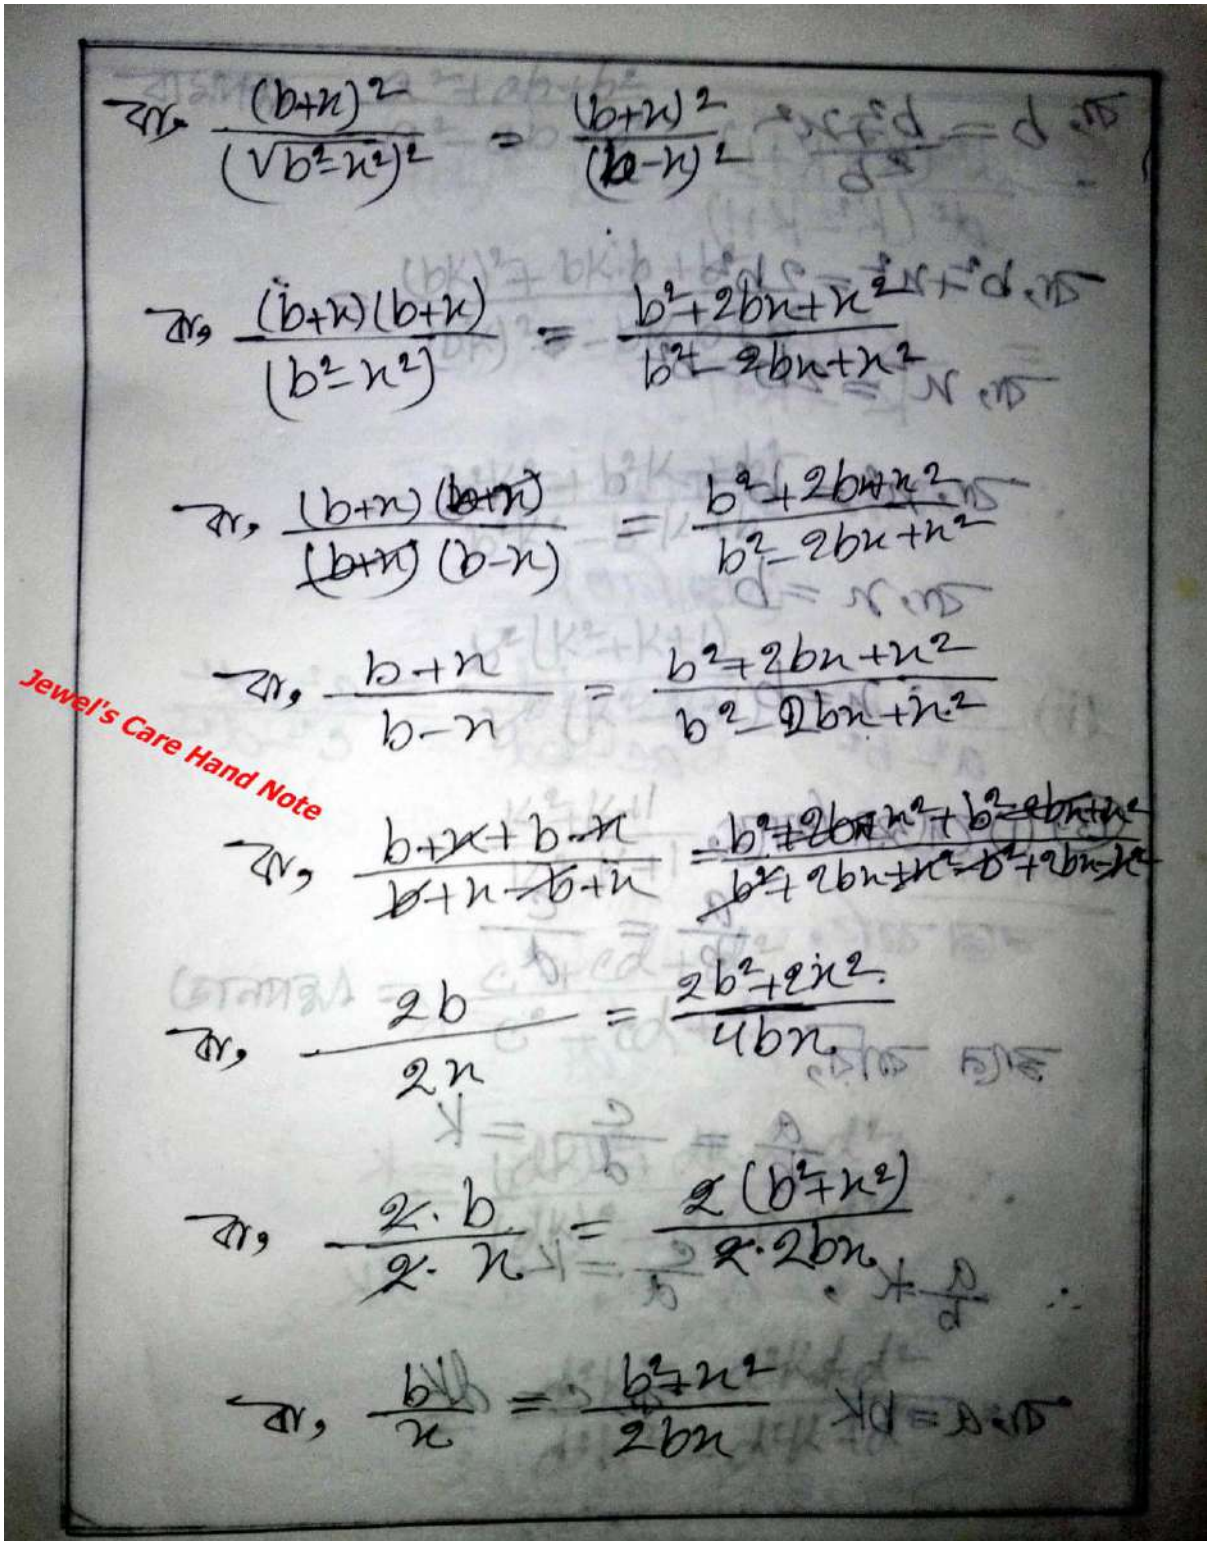 বা, (b+x)²/(√b²-x²)² = (b+x)²/(b-x)²
বা, (b+x)(b+x)/(b²-x²) = b²+2bx+x²/b²-2bx+x²
বা, (b+x)(b+x)/(b+x)(b-x) = b²+2bx+x²/b²-2bx+x²
বা, b+x/b-x = b²+2bx+x²/b²-2bx+x²
Jewel's Care Hand Note
বা, b+x+b-x/b+x-b+x = b²+2bx+x²+b²-2bx+x²/b²+2bx+x²-b²+2bx-x²
বা, 2b/2x = 2b²+2x²/4bx
বা, 2.b/2.x = 2(b²+x²)/2.2bx
বা, b/x = b²+x²/2bx